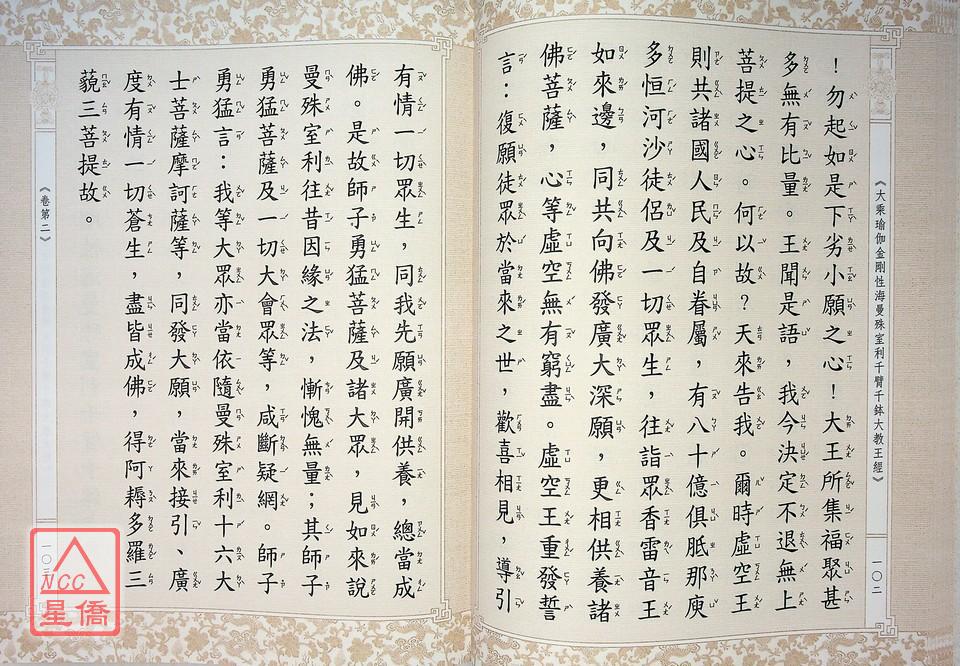 《大乘瑜伽金剛性海曼殊室利千臂千鉢大教王經》
一〇二
！勿起如是下劣小願之心！大王所集福聚甚
多無有比量。王聞是語，我今決定不退無上
菩提之心。何以故？天來告我。爾時虛空王
則共諸國人民及自眷屬，有八十億俱胝那庾
多恒河沙徒侶及一切眾生，往詣眾香雷音王
如來邊，同共向佛發廣大深願，更相供養諸
佛菩薩，心等虛空無有窮盡。虛空王重發誓
言：復願徒眾於當來之世，歡喜相見，導引
有情一切眾生，同我先願廣開供養，總當成
佛。是故師子勇猛菩薩及諸大眾，見如來說
曼殊室利往昔因緣之法，慚愧無量；其師子
勇猛菩薩及一切大會眾等，咸斷疑網。師子
勇猛言：我等大眾亦當依隨曼殊室利十六大
士菩薩摩訶薩等，同發大願，當來接引、廣
度有情一切蒼生，盡皆成佛，得阿耨多羅三
藐三菩提故。
《卷第二》
一〇三
NCC
星僑